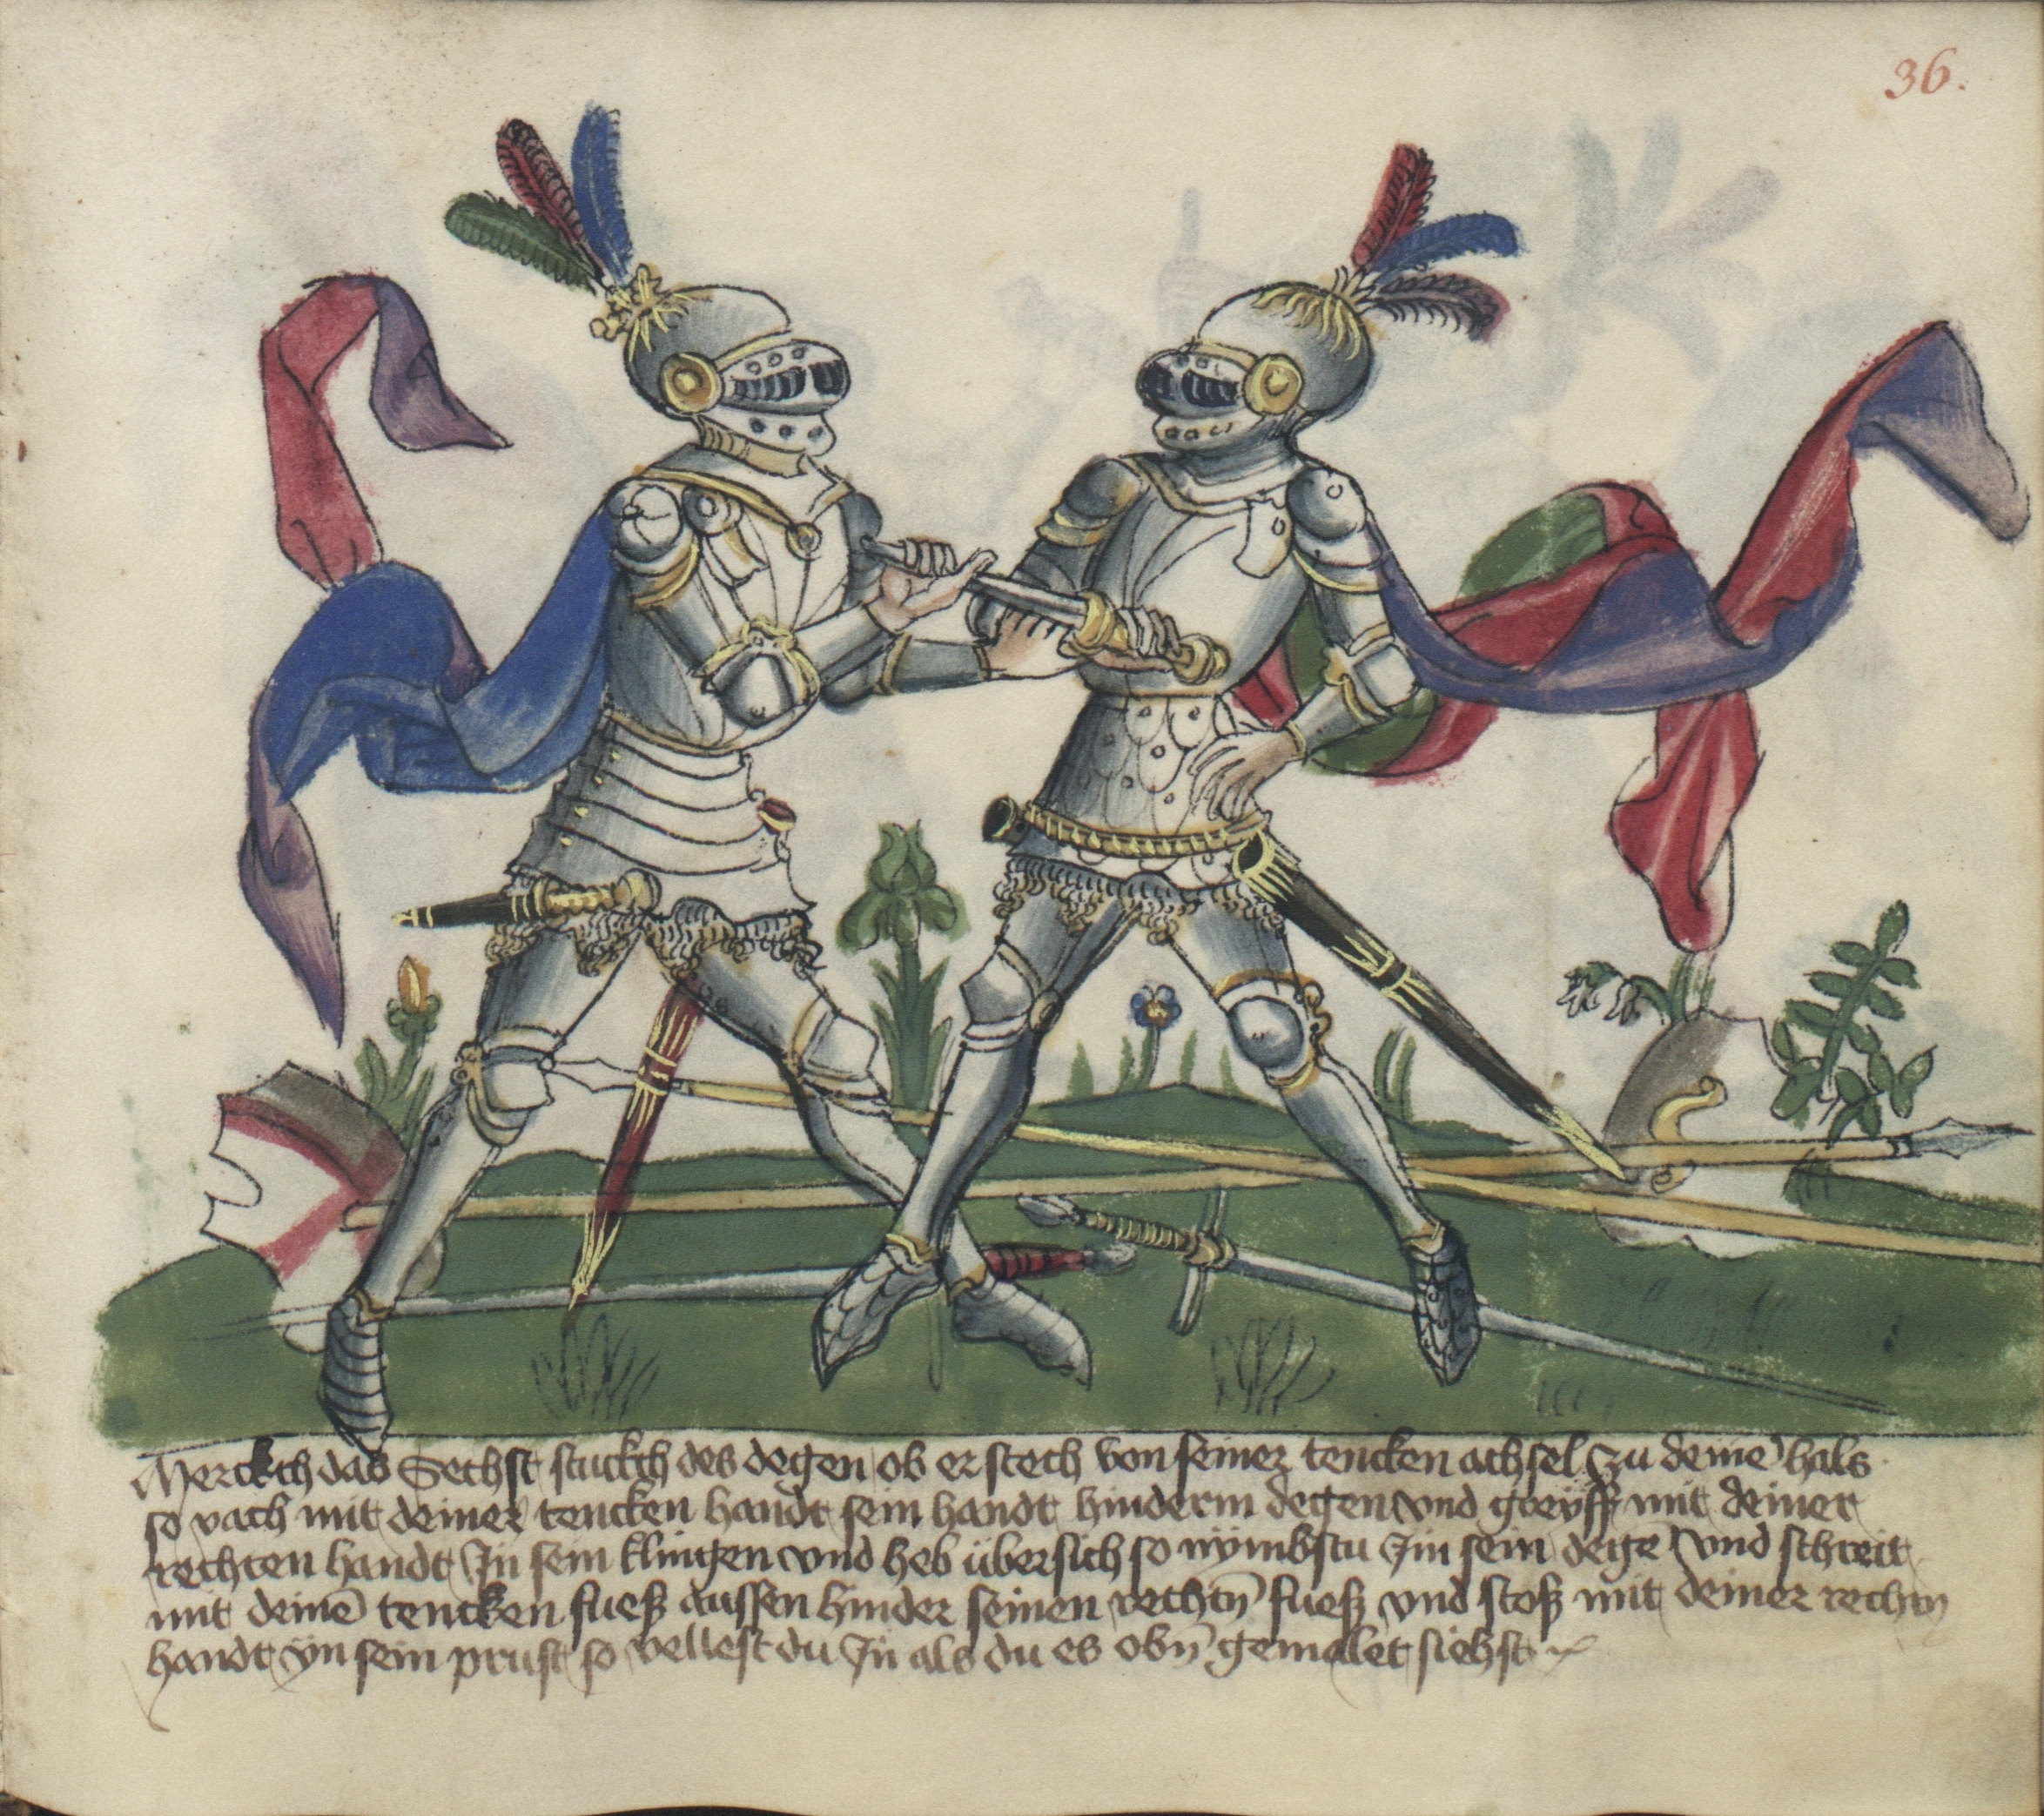 36.
Merckch das Sechst stuckch des degen ob er stech von seiner tencken achsel zu deinē hals
so vach mit deiner tencken handt sein handt hinderm degen vnd greyff mit deiner
rechten handt Jn sein klingen vnd heb übersich so nymbstu Jm sein degē vnd schreit
mit deinē tencken fueß aussen hinder seinen rechtn̄ fueß vnd stoß mit deiner rechtn̄
handt yn sein prust so vellest du Jn als du es obn̄ gemalet siehst